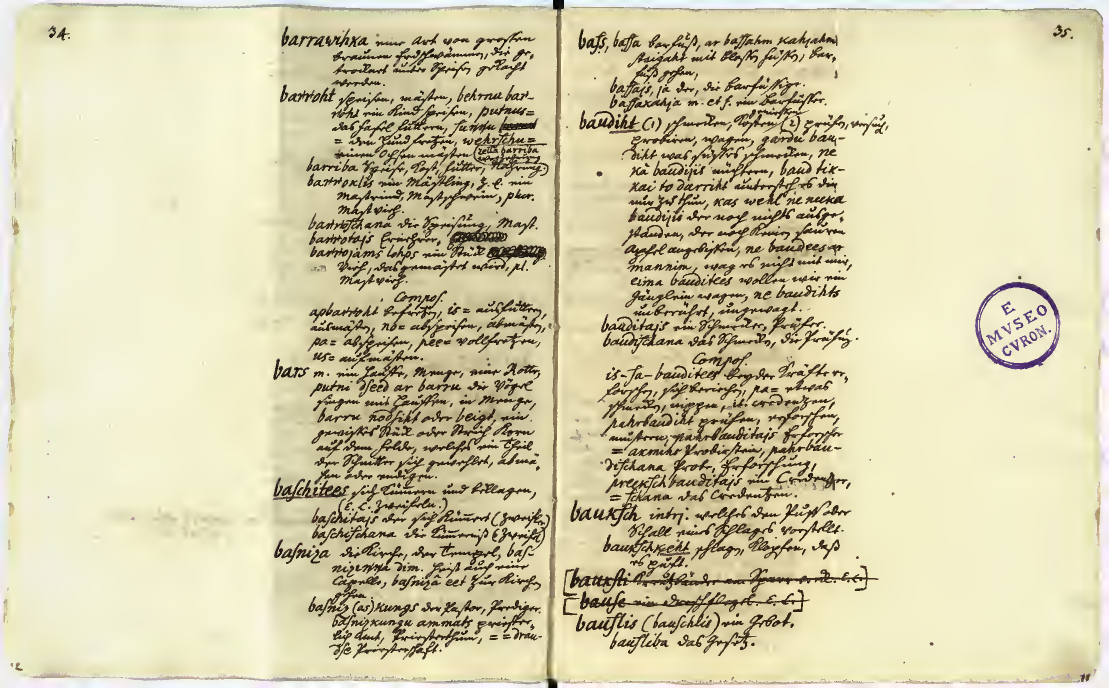 34.
barrawihka eine Art von grossen
braunen Erdschwämmen, die ge-
trocknet unter Speisen gekocht
werden.
barroht speisen, mästen, behrnu bar-
roht ein Kind speisen, putnus=
das Fasel füttern, sunnu
= den Hund fretzen, wehrschu=
einen Ochsen mästen (zella barriba
barriba Speise, Kost, Futter, Nahrung)
barroklis ein Mästling, z. E. ein
Mastrind, Mastschwein, plur.
Mastvieh.
barroschana die Speisung, Mast.
barrotajs Ernehrer,
barrojams lohps ein Stück
Vieh, das gemästet wird, pl.
Mastvieh.
Compos.
apbarroht befretzen, is= ausfüttern,
ausmästen, no= abspeisen, abmästen,
pa= abspeisen, pee= vollfretzen,
us= aufmästen.
bars m. ein Hauffe, Menge, eine Rotte,
putni dseed ar barru die Vögel
singen mit Hauffen, in Menge,
barru nodsiht oder beigt, ein
gewisses Stück oder Strich Korn
auf dem Felde, welches ein Theil
der Schnitter sich gewehlet, abmä-
hen oder endigen.
baschitees sich kümmern und beklagen,
(E. L. zweifeln.)
baschitajs der sich kümmert (zweifler)
baschischana die Kümmerniß (zweifel)
basniza die Kirche, der Tempel, bas-
nizinna dim. heist auch eine
Capelle, basnizâ eet zur Kirche
gehen.
basniz(as)kungs der Pastor, Prediger.
basnizkungu ammats priester-
lich Amt, Priesterthum, = = drau-
dse Priesterschaft.
35.
bass, bassa barfuß, ar bassahm kahjahm
staigaht mit bloßen füßen, bar-
fuß gehen,
bassajs, ja der, die barfüßige.
bassakahja m. et f. ein Barfüsser.
baudiht (1) schmecken, kosten (2) prüfen, versuchen,
probiren, wagen, gardu bau-
diht was süsses schmecken, ne
kâ baudijis nüchtern, baud tik-
kai to darriht unterstehe es dir
nur zu thun, kas wehl ne neeka
baudijis der noch nichts ausge-
standen, der noch keinen sauren
Apfel angebissen, ne baudees ar
mannim, wag es nicht mit mir,
eima baudites wollen wir ein
Gänglein wagen, ne baudihts
unberührt, ungewagt.
bauditajs ein Schmecker, Prüfer.
baudischana das Schmecken, die Prüfung.
Compos.
is-sa-bauditees beyder Kräfte er-
forschen, sich beriechen, pa= etwas
schmecken, nippen, it. credentzen,
pahrbaudiht prüfen, erforschen,
mustern, pahrbauditajs Erforscher
= akmins Probierstein, pahrbau-
dischana Probe, Erforschung,
preekschbauditajs ein Credentzer,
= schana das Credentzen.
bauksch interj: welches den Puff oder
Schall eines Schlages vorstellt.
baukschkeht schlagen, klopfen, daß
es pufft.
[bauksti
[bause
bauslis (bauschlis) ein Gebot.
bausliba das Gesetz.
E
MVSEO
CVRON.